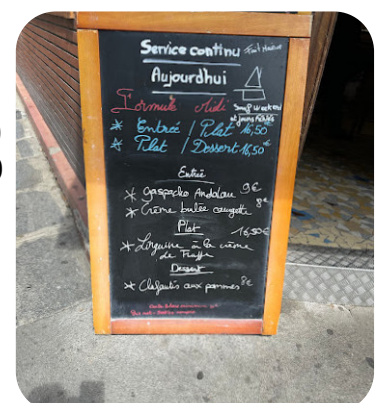 Service continu Fait Maison
Aujourdhui
Formule Midi Sauf Week end
et jours fériés
* Entrée / Plat 16,50
* Plat / Dessert 16,50€
Entrée
* Gaspacho Andalou 9€
* Crème brûlée courgette 8€
Plat 16,50€
* Linguine à la crème
de Truffe
Dessert
* Clafoutis aux pommes 8€